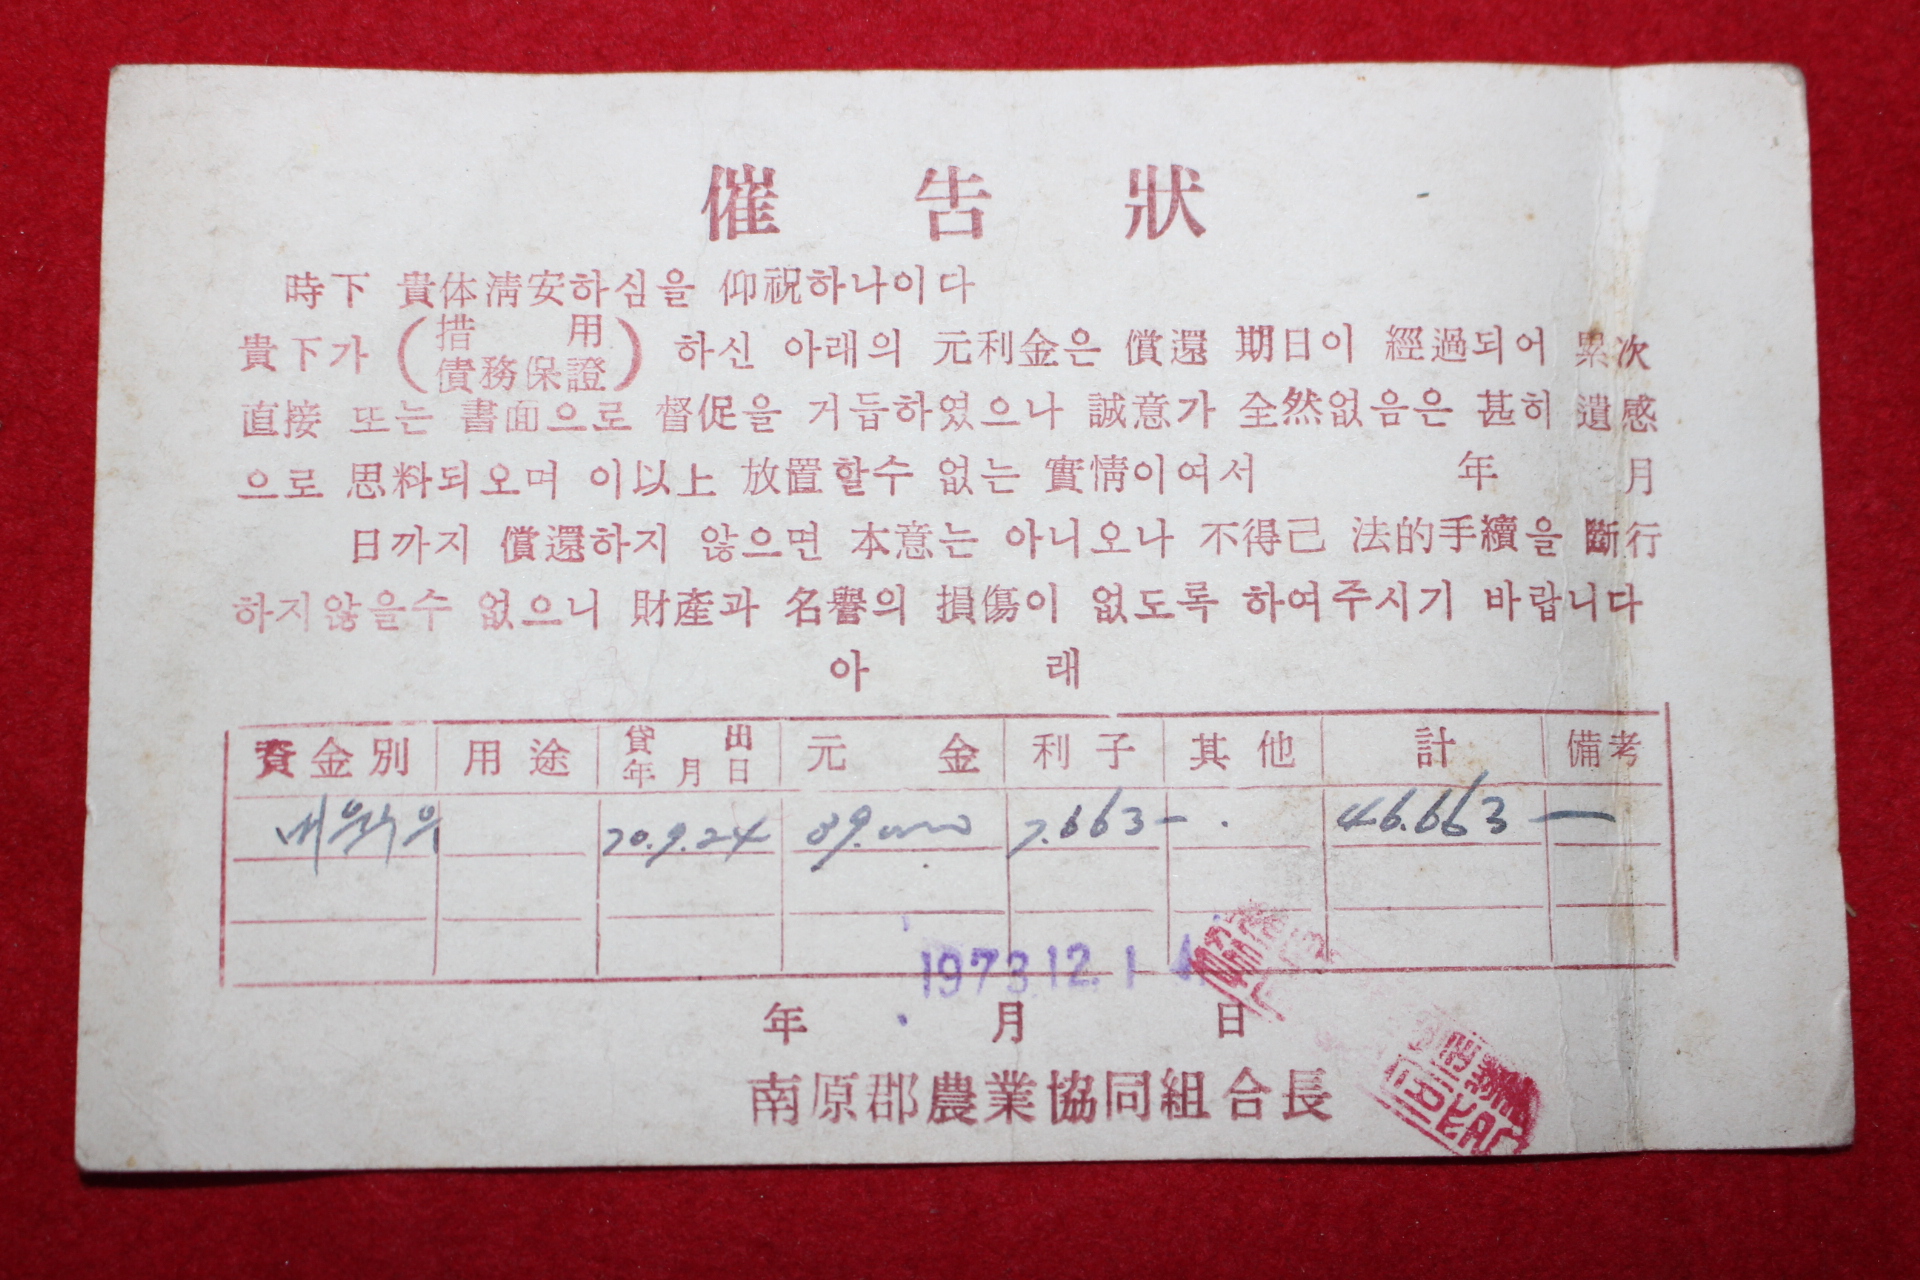 催告狀
時下 貴体淸安하심을 仰祝하나이다
貴下가 (措用 債務保證) 하신 아래의 元利金은 償還 期日이 經過되어 累次
直接 또는 書面으로 督促을 거듭하였으나 誠意가 全然없음은 甚히 遺感
으로 思料되오며 이以上 放置할수 없는 實情이여서 年 月
日까지 償還하지 않으면 本意는 아니오나 不得己 法的手續을 斷行
하지않을수 없으니 財産과 名譽의 損傷이 없도록 하여주시기 바랍니다
아래
資金別 用途 貸出年月日 元金 利子 其他 計 備考
70.9.24 39.000 7.663- 46.663 —
1973.12.1
年 月 日
南原郡農業協同組合長